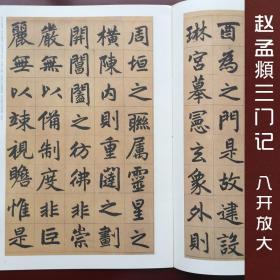 赵孟頫三门记 八开放大
酉為之門是故建設
琳宮摹憲玄象外則
周垣之聯屬靈星之
橫陳内則重闥之劃
開閶闔之彷彿非崇
嚴無以備制度非巨
麗無以竦視瞻惟是